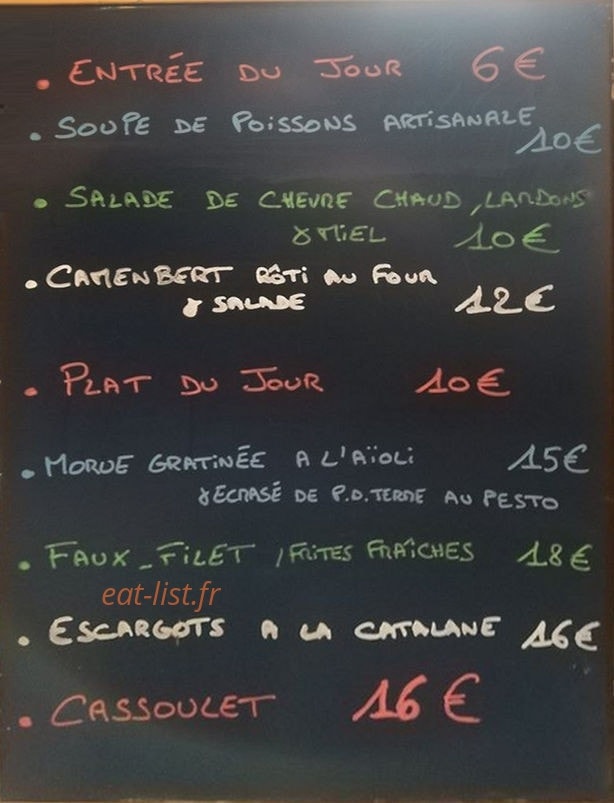 • ENTRÉE DU JOUR 6€
• SOUPE DE POISSONS ARTISANALE 10€
• SALADE DE CHEVRE CHAUD, LARDONS
& MIEL 10€
• CAMENBERT RÔTI AU FOUR
& SALADE 12€
• PLAT DU JOUR 10€
• MORUE GRATINÉE A L'AÏOLI 15€
& ECRASÉ DE P.D.TERRE AU PESTO
• FAUX-FILET, FRITES FRAÎCHES 18€
eat-list.fr
• ESCARGOTS A LA CATALANE 16€
• CASSOULET 16€